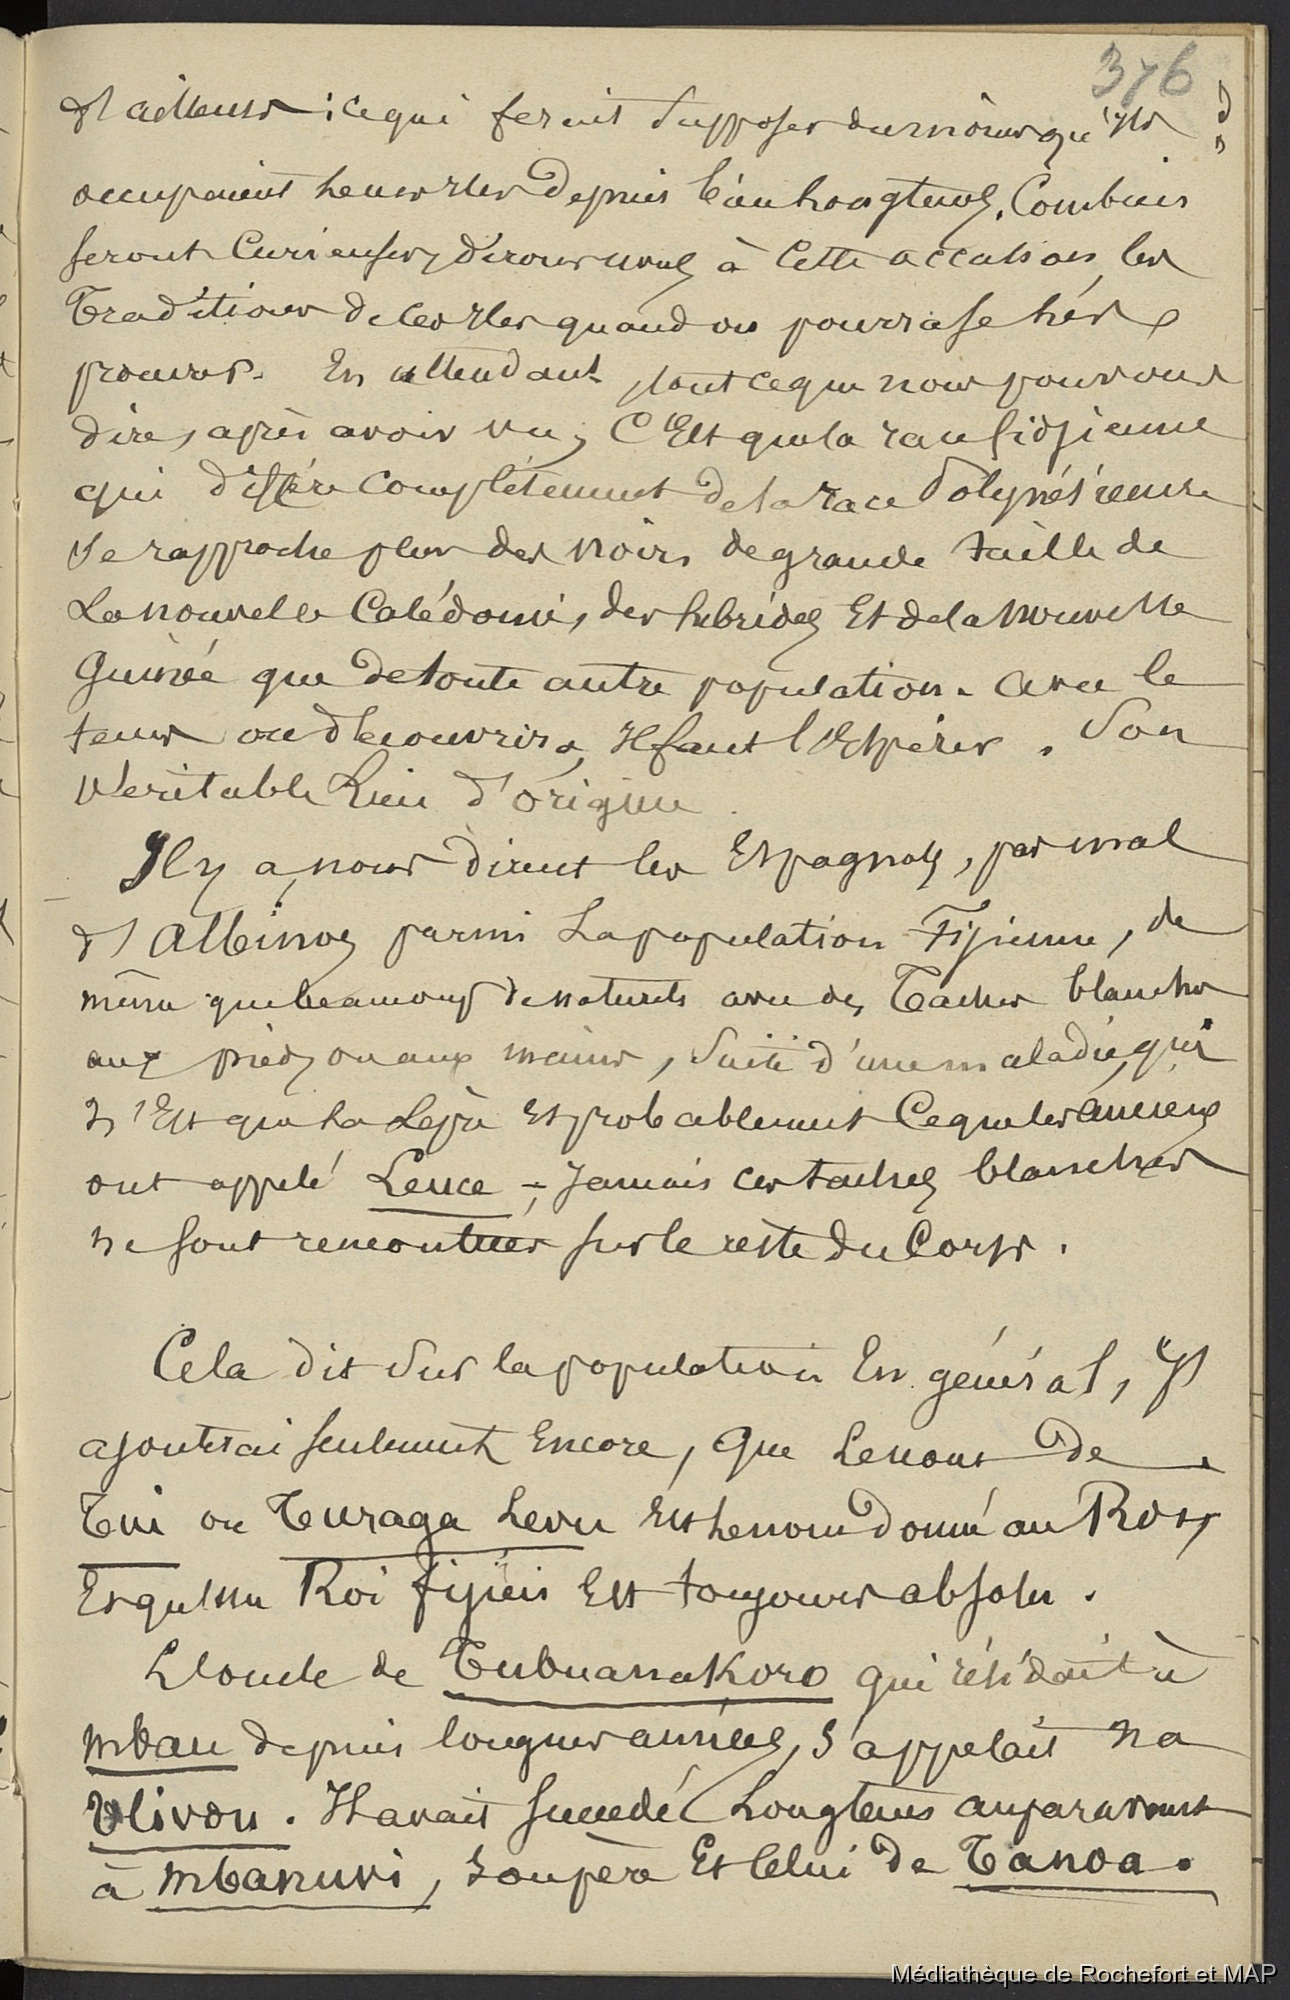 376
d'ailleurs ; ce qui ferait supposer du moins qu'ils
occupaient leurs îles depuis bien longtems. Combien
seront curieuses, à cette occasion, les
traditions de ces îles quand on pourra se les
procurer. En attendant, tout ce que nous pouvons
dire, après avoir vu, c'Est que la race fidjienne
qui diffère complétement de la race Polynésienne
se rapproche plus des noirs de grande taille de
La nouvelle Calédonie, des hébrides Et de la Nouvelle
Guinée que de toute autre population. Avec le
tems on découvrira, Il faut l'Espérer. Son
véritable Lieu d'origine
Il y a, nous dirent les Espagnols, pas mal
d'Albinos parmi La population Fijienne, de
même que beaucoup de naturels avec des Taches blanches
aux pieds ou aux mains, suite d'une maladie, qui
n'Est que La Lèpre Et probablement Ce que les anciens
ont appelé Leuce - ; Jamais ces taches blanches
ne sont rencontrées sur le reste du Corps.
Cela dit sur la population En général, J'
ajouterai seulement Encore, Que Le nom de
Tui ou Turaga Levu Est Le nom donné au Roi,
Et qu'un Roi fijien Est toujours absolu.
L'oncle de Tubuanakoro qui résidait à
Mbau depuis longues années, s'appelait Na
Ulivou. Il avait succédé Longtems auparavant
à Mbanuvi, son père Et Celui de Tanoa.
Médiathèque de Rochefort et MAP